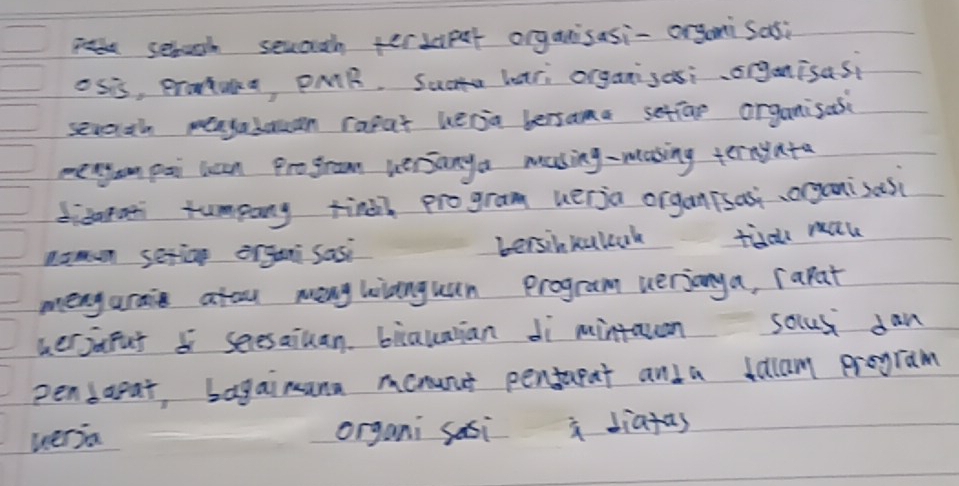 Pada sebuah sekolah terdapat organisasi-organisasi
osis, Pramuka, PMR. Suatu hari organisasi-organisasi
sekolah mengadakan rapat kerja bersama setiap organisasi
mengampai kan Program kerjanya masing-masing ternyata
didapati tumpang tindih program kerja organisasi-organisasi
namun setiap organisasi bersihkukuh tidak mau
mengurais atau menghilangkan Program kerjanya, rapat
berjaput di selesaikan. bilakalian di mintakan solusi dan
pendapat, bagaimana menurut pendapat anda dalam program
kerja organisasi di diatas